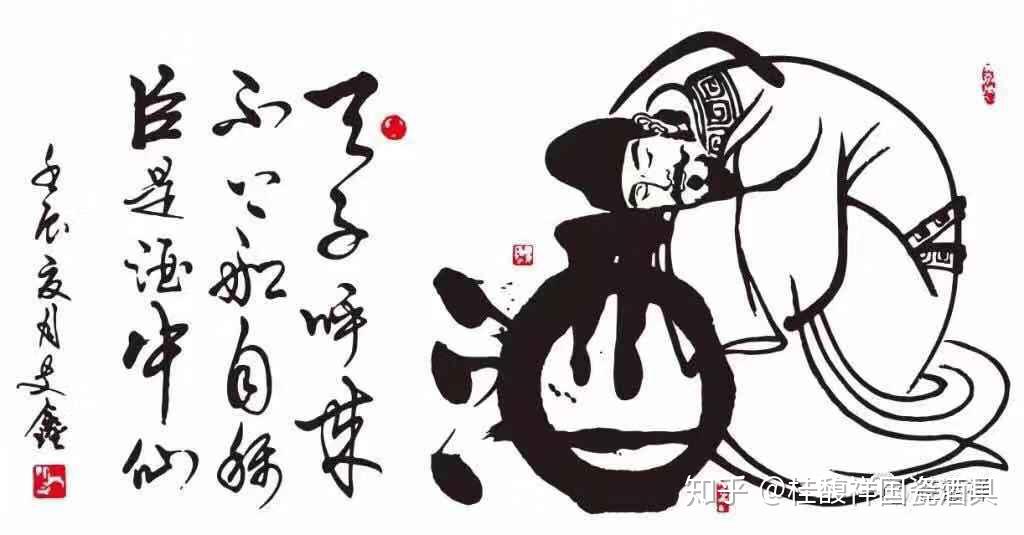 天子呼来
不上船自称
臣是酒中仙
壬辰夏月鑫
知乎 @桂馥祥国瓷酒具